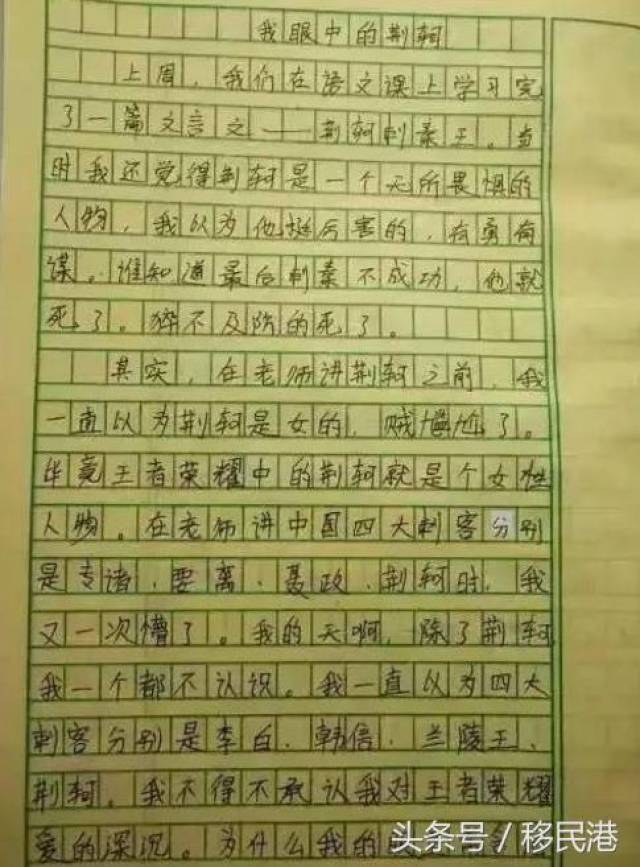 我眼中的荆轲
上周，我们在语文课上学习完
了一篇文言文——荆轲刺秦王。当
时我还觉得荆轲是一个无所畏惧的
人物，我认为他挺厉害的，有勇有
谋。谁知道最后刺秦不成功，他就
死了。猝不及防的死了。
其实，在老师讲荆轲之前，我
一直以为荆轲是女的，贼尴尬了。
毕竟王者荣耀中的荆轲就是个女性
人物。在老师讲中国四大刺客分别
是专诸、要离、聂政、荆轲时，我
又一次懵了。我的天啊，除了荆轲
我一个都不认识。我一直以为四大
刺客分别是李白、韩信、兰陵王、
荆轲。我不得不承认我对王者荣耀
爱的深沉。为什么我的
头条号 / 移民港